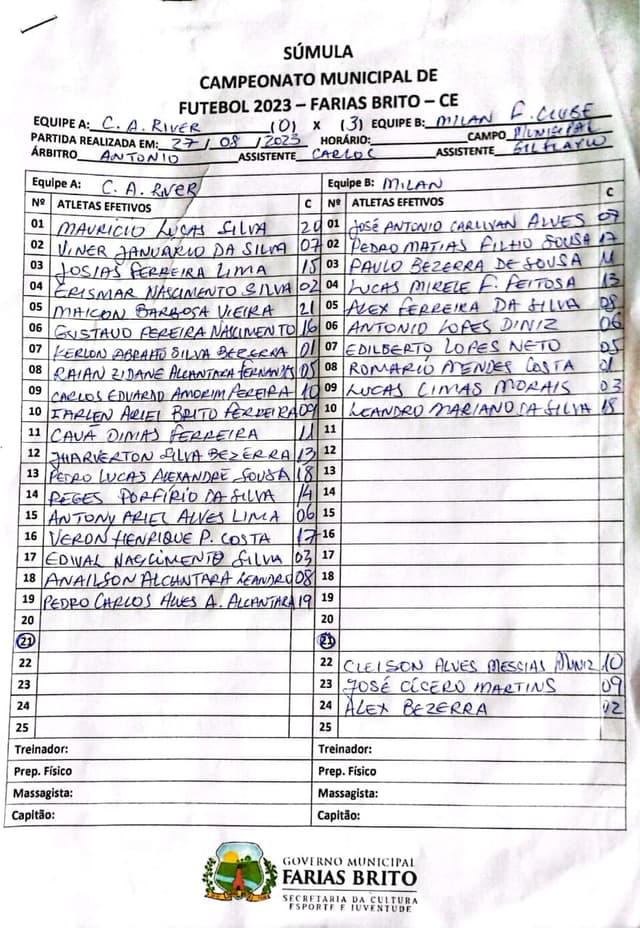 SÚMULA
CAMPEONATO MUNICIPAL DE
FUTEBOL 2023 – FARIAS BRITO – CE
EQUIPE A: C. A. RIVER (0) X (3) EQUIPE B: MILAN F. CLUBE
PARTIDA REALIZADA EM: 27 / 08 / 2023 HORÁRIO: CAMPO MUNICIPAL
ÁRBITRO ANTONIO ASSISTENTE CARLOS ASSISTENTE
Equipe A: C. A. RIVER Equipe B: MILAN
Nº ATLETAS EFETIVOS C Nº ATLETAS EFETIVOS C
01 MAURICIO LUCAS SILVA 20 01 JOSÉ ANTONIO CARLIVAN ALVES 07
02 VINER JANUÁRIO DA SILVA 07 02 PEDRO MATIAS FILHO SOUSA 17
03 JOSIAS FERREIRA LIMA 15 03 PAULO BEZERRA DE SOUSA 11
04 ERISMAR NASCIMENTO SILVA 02 04 LUCAS MIRELE F. FEITOSA 13
05 MAICON BARBOSA VIEIRA 21 05 ALEX FERREIRA DA SILVA 08
06 GUSTAVO PEREIRA NASCIMENTO 16 06 ANTONIO LOPES DINIZ 06
07 KERLON ABRAHÃO SILVA BEZERRA 01 07 EDILBERTO LOPES NETO 05
08 RAIAN ZIDANE ALCANTARA FERNANDES 05 08 ROMARIO MENDES COSTA 01
09 CARLOS EDUARDO AMORIM PEREIRA 10 09 LUCAS CIMAS MORAIS 03
10 IARLEN ARIEL BRITO FERREIRA 09 10 LEANDRO MARIANO DA SILVA 18
11 CAUÃ DIMAS FERREIRA 11 11
12 JHARVERTON SILVA BEZERRA 13 12
13 PEDRO LUCAS ALEXANDRE SOUSA 18 13
14 REGES PORFÍRIO DA SILVA 14 14
15 ANTONY ARIEL ALVES LIMA 06 15
16 VERON HENRIQUE P. COSTA 17 16
17 EDIVAL NASCIMENTO SILVA 03 17
18 ANAILSON ALCANTARA LEANDRO 08 18
19 PEDRO CARLOS ALVES A. ALCANTARA 19 19
20 20
21 21
22 22 CLEISON ALVES MESSIAS DINIZ 10
23 23 JOSÉ CÍCERO MARTINS 09
24 24 ALEX BEZERRA 02
25 25
Treinador: Treinador:
Prep. Físico Prep. Físico
Massagista: Massagista:
Capitão: Capitão:
GOVERNO MUNICIPAL
FARIAS BRITO
SECRETARIA DA CULTURA
ESPORTE E JUVENTUDE